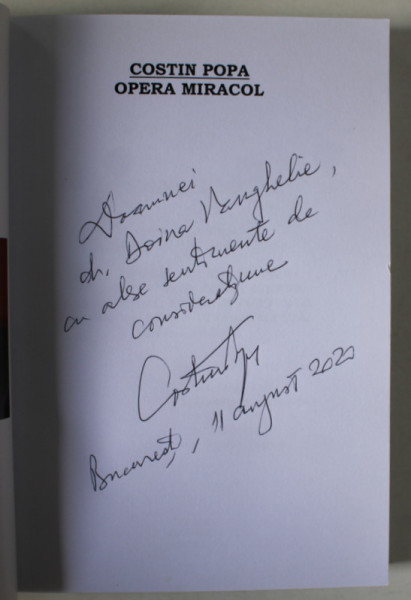 COSTIN POPA
OPERA MIRACOL
Doamnei
dr. Doina Vanghelie,
cu alese sentimente de
considerațiune
București, 11 august 2020